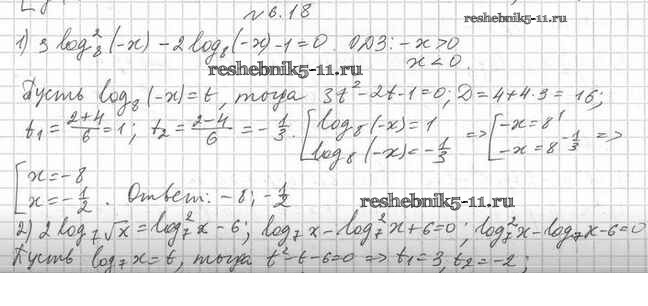 №6.18
reshebnik5-11.ru
1) 3 log₈²(-x) - 2 log₈(-x) - 1 = 0. ОДЗ: -x > 0
x < 0.
reshebnik5-11.ru
Пусть log₈(-x) = t, тогда 3t² - 2t - 1 = 0; D = 4 + 4·3 = 16;
t₁ = (2+4)/6 = 1; t₂ = (2-4)/6 = -1/3. [log₈(-x) = 1 => [-x = 8¹
log₈(-x) = -1/3 -x = 8^(-1/3) =>
[x = -8
x = -1/2. Ответ: -8; -1/2
reshebnik5-11.ru
2) 2 log₇√x = log₇²x - 6; log₇x - log₇²x + 6 = 0; log₇²x - log₇x - 6 = 0
Пусть log₇x = t, тогда t² - t - 6 = 0 => t₁ = 3, t₂ = -2;